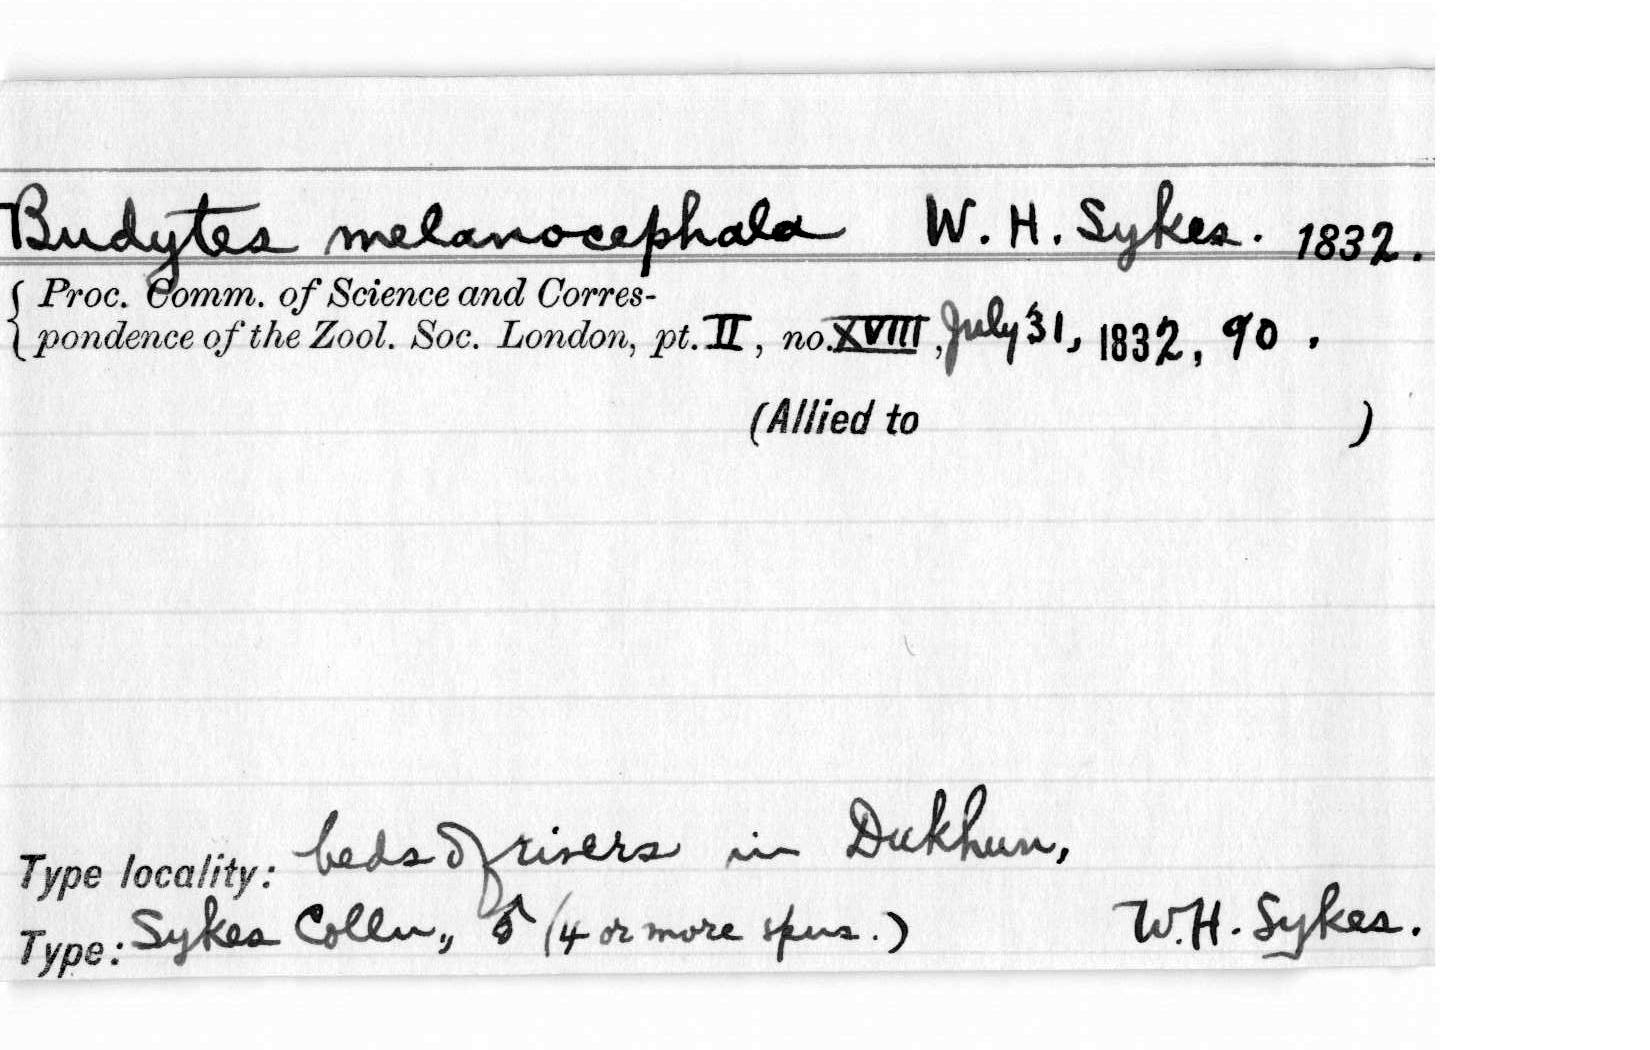 Budytes melanocephala W. H. Sykes. 1832.
{ Proc. Comm. of Science and Corres-
pondence of the Zool. Soc. London, pt. II, no. XVIII, July 31, 1832, 90.
(Allied to )
Type locality: beds of rivers in Dukhun,
Type: Sykes Colln., ♂ (4 or more spms.) W.H. Sykes.